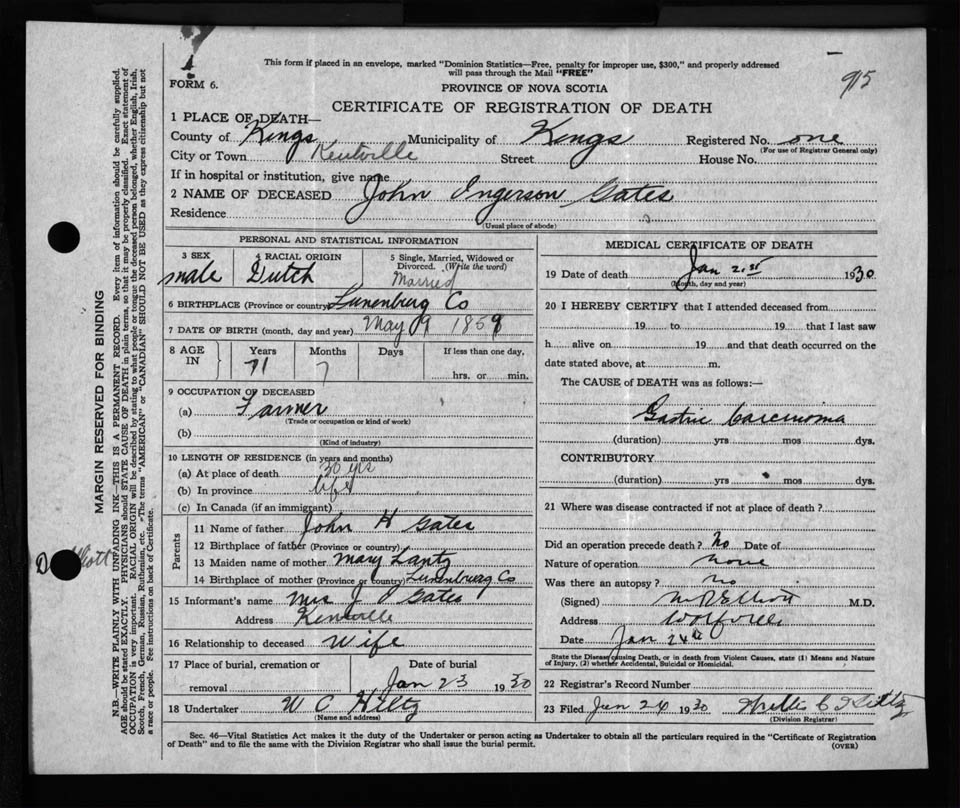 This form if placed in an envelope, marked "Dominion Statistics—Free, penalty for improper use, $300," and properly addressed
will pass through the Mail "FREE"
FORM 6.
915
PROVINCE OF NOVA SCOTIA
CERTIFICATE OF REGISTRATION OF DEATH
1 PLACE OF DEATH—
County of Kings Municipality of Kings Registered No. one
(For use of Registrar General only)
City or Town Kentville Street House No.
If in hospital or institution, give name
2 NAME OF DECEASED John Ingerson Gates
Residence
(Usual place of abode)
PERSONAL AND STATISTICAL INFORMATION
3 SEX 4 RACIAL ORIGIN 5 Single, Married, Widowed or
Divorced. (Write the word)
male Dutch Married
6 BIRTHPLACE (Province or country) Lunenburg Co
7 DATE OF BIRTH (month, day and year) May 9 1858
8 AGE IN Years Months Days If less than one day,
71 7 hrs. or min.
9 OCCUPATION OF DECEASED
(a) Farmer
(Trade or occupation or kind of work)
(b)
(Kind of industry)
10 LENGTH OF RESIDENCE (in years and months)
(a) At place of death 30 yrs
(b) In province life
(c) In Canada (if an immigrant)
Parents
11 Name of father John H Gates
12 Birthplace of father (Province or country)
13 Maiden name of mother Mary Lantz
14 Birthplace of mother (Province or country) Lunenburg Co
15 Informant's name Mrs J Gates
Address Kentville
16 Relationship to deceased Wife
17 Place of burial, cremation or Date of burial
removal Jan 23 1930
18 Undertaker W C Hiltz
(Name and address)
MEDICAL CERTIFICATE OF DEATH
19 Date of death Jan 21st 1930
(Month, day and year)
20 I HEREBY CERTIFY that I attended deceased from
19 to 19 that I last saw
h alive on 19 and that death occurred on the
date stated above, at m.
The CAUSE of DEATH was as follows:—
Gastric Carcinoma
(duration) yrs mos dys.
CONTRIBUTORY
(duration) yrs mos dys.
21 Where was disease contracted if not at place of death?
Did an operation precede death? No Date of
Nature of operation none
Was there an autopsy? no
(Signed) M R Elliott M.D.
Address Wolfville
Date Jan 24
State the Disease causing Death, or in death from Violent Causes, state (1) Means and Nature
of Injury, (2) whether Accidental, Suicidal or Homicidal.
22 Registrar's Record Number
23 Filed Jan 24 1930 Willis C Hiltz
(Division Registrar)
Sec. 46—Vital Statistics Act makes it the duty of the Undertaker or person acting as Undertaker to obtain all the particulars required in the "Certificate of Registration
of Death" and to file the same with the Division Registrar who shall issue the burial permit.
(OVER)
MARGIN RESERVED FOR BINDING
N.B.—WRITE PLAINLY WITH UNFADING INK—THIS IS A PERMANENT RECORD. Every item of information should be carefully supplied.
AGE should be stated EXACTLY. PHYSICIANS should STATE CAUSE OF DEATH in plain terms, so that it may be properly classified. Exact statement of
OCCUPATION is very important. RACIAL ORIGIN will be described by stating to what people or tongue the deceased person belonged, whether English, Irish,
Scotch, French, German, Russian, Ruthenian, etc. The terms "AMERICAN" or "CANADIAN" SHOULD NOT BE USED as they express citizenship but not
a race or people. See instructions on back of Certificate.